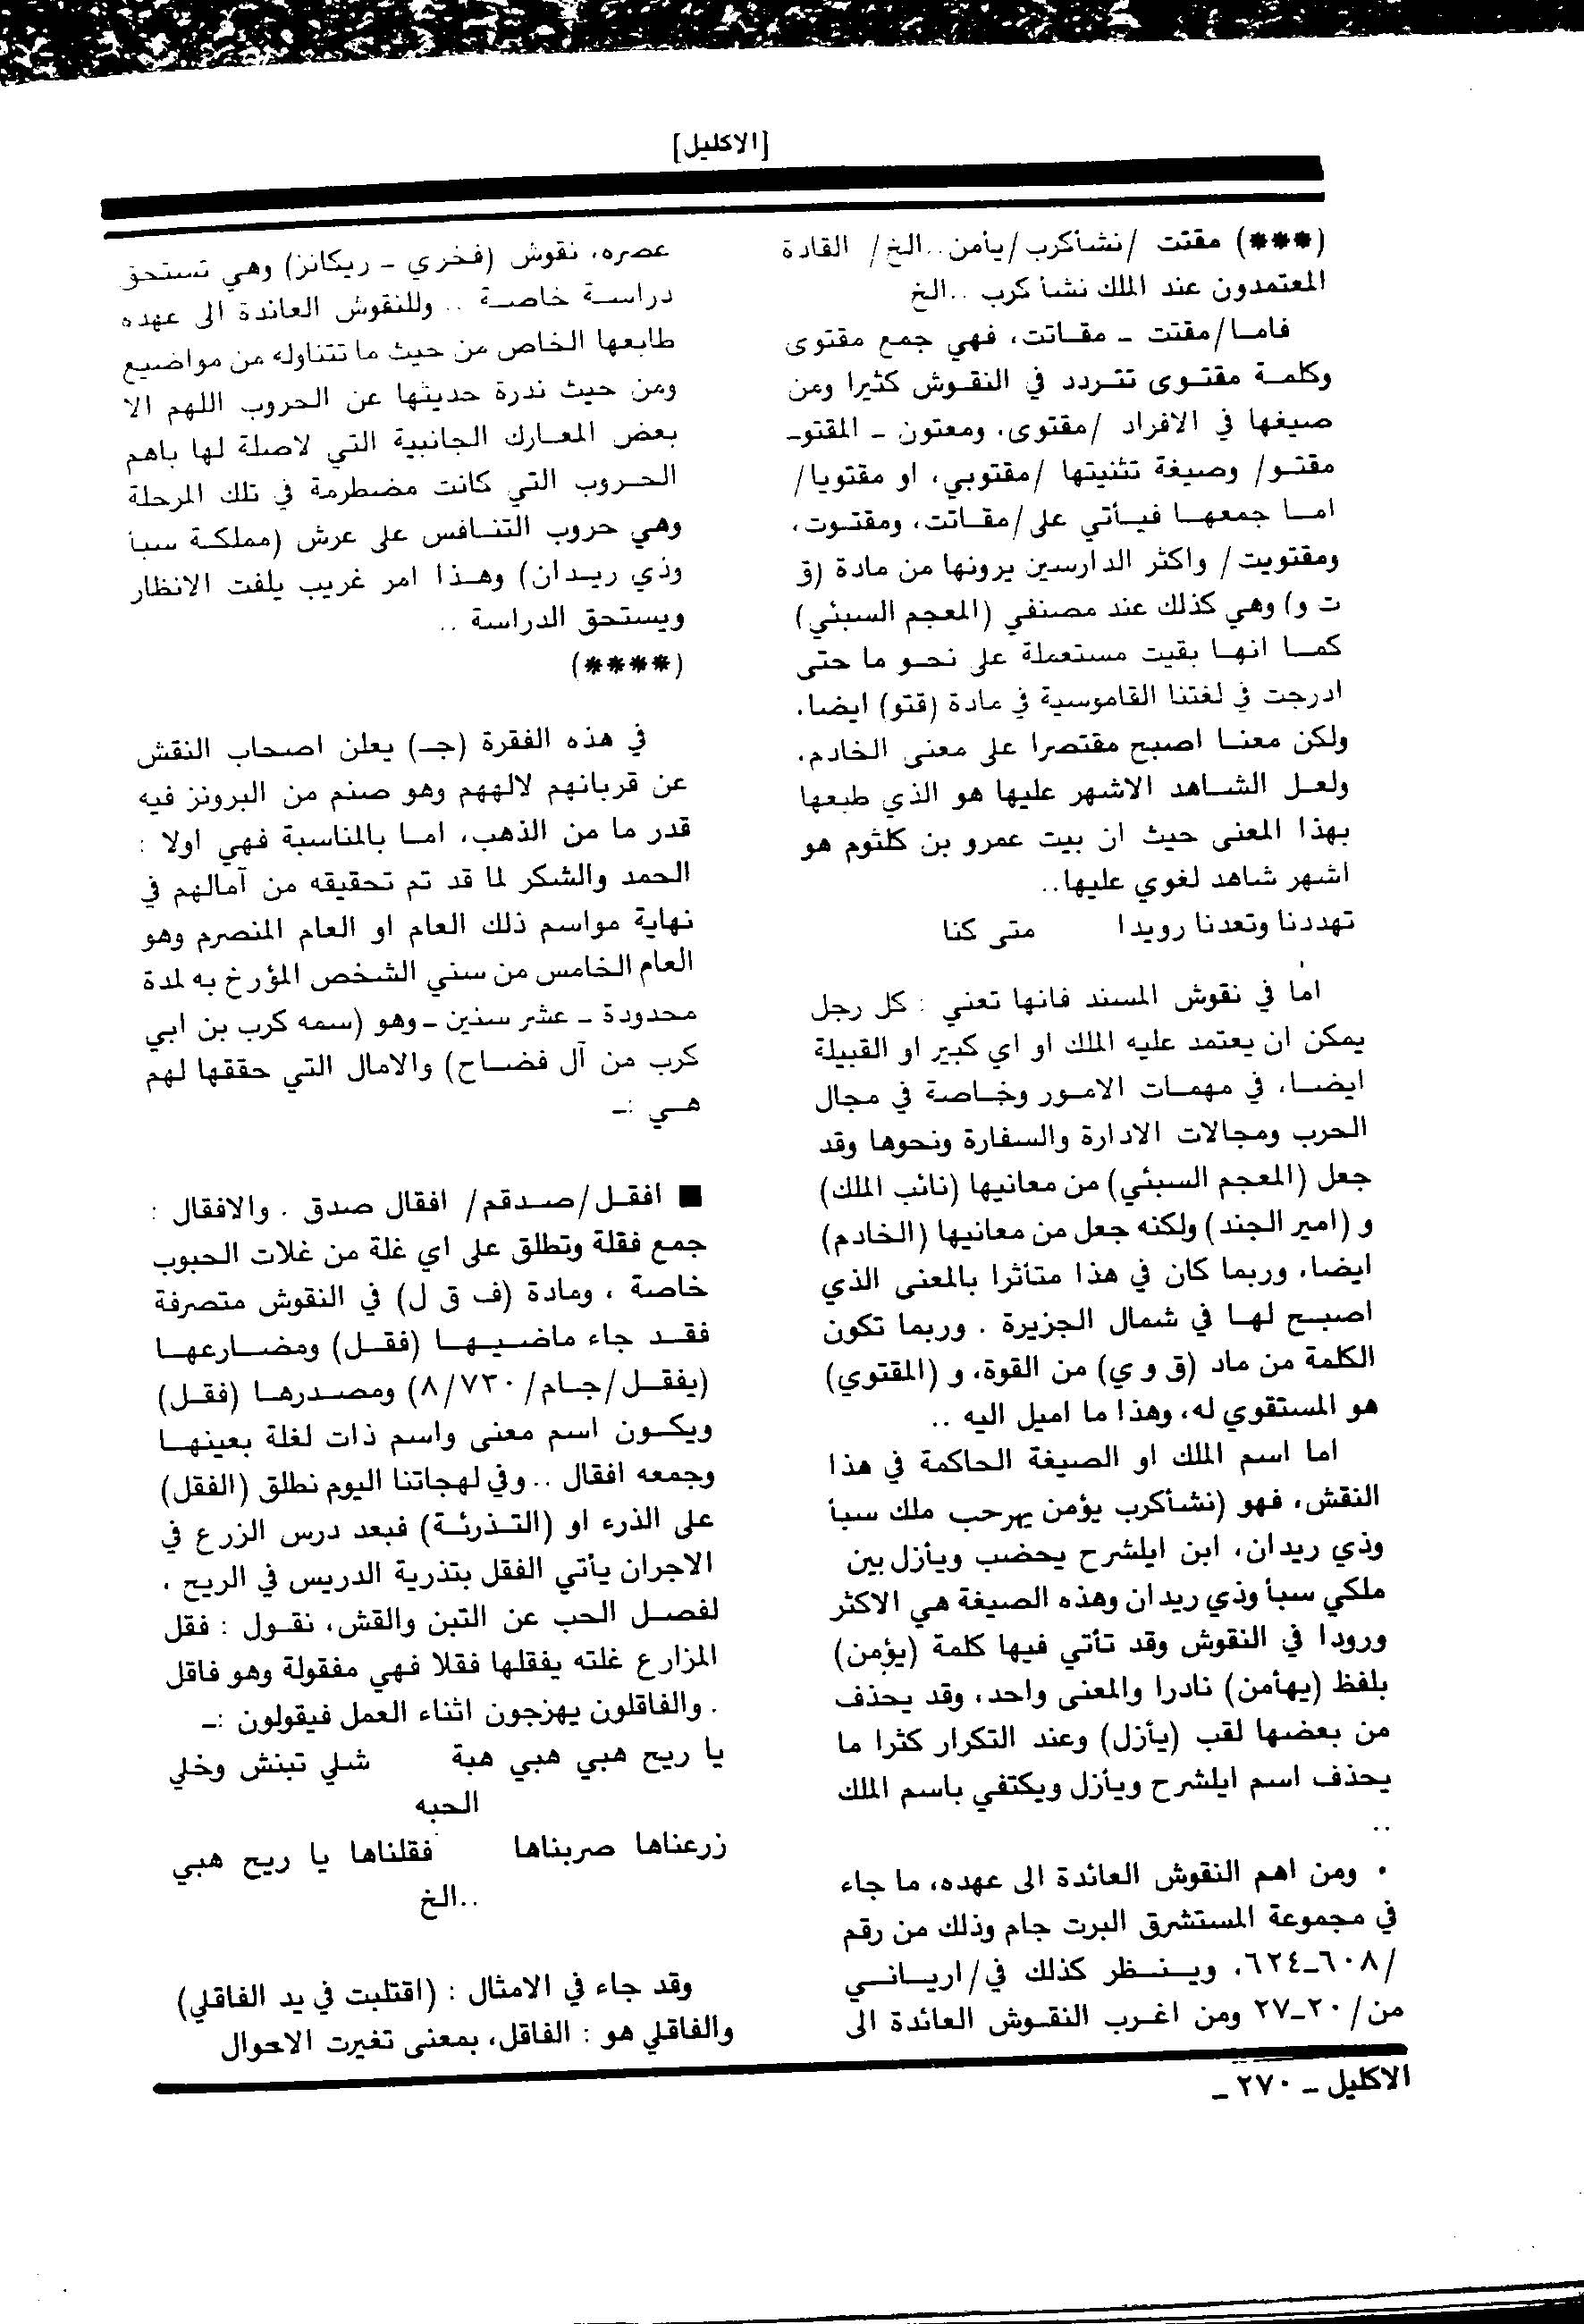 [الاكليل]
(***) مقتت /نشأكرب/يأمن..الخ/ القادة
المعتمدون عند الملك نشأ كرب ..الخ
فاما/مقتت ـ مقاتت، فهي جمع مقتوى
وكلمة مقتوى تتردد في النقوش كثيرا ومن
صيغها في الافراد /مقتوى، ومعتون ـ المقتوـ
مقتو/ وصيغة تثنيتها /مقتوبي، او مقتويا/
اما جمعها فيأتي على/مقاتت، ومقتوت،
ومقتويت/ واكثر الدارسين يرونها من مادة (ق
ت و) وهي كذلك عند مصنفي (المعجم السبئي)
كما انها بقيت مستعملة على نحو ما حتى
ادرجت في لغتنا القاموسية في مادة (قتو) ايضا،
ولكن معنا اصبح مقتصرا على معنى الخادم،
ولعل الشاهد الاشهر عليها هو الذي طبعها
بهذا المعنى حيث ان بيت عمرو بن كلثوم هو
اشهر شاهد لغوي عليها..
تهددنا وتعدنا رويدا متى كنا
اما في نقوش المسند فانها تعني : كل رجل
يمكن ان يعتمد عليه الملك او اي كبير او القبيلة
ايضا، في مهمات الامور وخاصة في مجال
الحرب ومجالات الادارة والسفارة ونحوها وقد
جعل (المعجم السبئي) من معانيها (نائب الملك)
و (امير الجند) ولكنه جعل من معانيها (الخادم)
ايضا، وربما كان في هذا متأثرا بالمعنى الذي
اصبح لها في شمال الجزيرة . وربما تكون
الكلمة من ماد (ق و ي) من القوة، و (المقتوي)
هو المستقوي له، وهذا ما اميل اليه ..
اما اسم الملك او الصيغة الحاكمة في هذا
النقش، فهو (نشأكرب يؤمن يهرحب ملك سبأ
وذي ريدان، ابن ايلشرح يحضب ويأزل بين
ملكي سبأ وذي ريدان وهذه الصيغة هي الاكثر
ورودا في النقوش وقد تأتي فيها كلمة (يؤمن)
بلفظ (يهأمن) نادرا والمعنى واحد، وقد يحذف
من بعضها لقب (يأزل) وعند التكرار كثرا ما
يحذف اسم ايلشرح ويأزل ويكتفي باسم الملك
..
• ومن اهم النقوش العائدة الى عهده، ما جاء
في مجموعة المستشرق البرت جام وذلك من رقم
/٦٠٨ـ٦٢٤، وينظر كذلك في/ارياني
من/٢٠ـ٢٧ ومن اغرب النقوش العائدة الى
عصره، نقوش (فخري ـ ريكانز) وهي تستحق
دراسة خاصة .. وللنقوش العائدة الى عهده
طابعها الخاص من حيث ما تتناوله من مواضيع
ومن حيث ندرة حديثها عن الحروب اللهم الا
بعض المعارك الجانبية التي لاصلة لها باهم
الحروب التي كانت مضطرمة في تلك المرحلة
وهي حروب التنافس على عرش (مملكة سبأ
وذي ريدان) وهذا امر غريب يلفت الانظار
ويستحق الدراسة ..
(****)
في هذه الفقرة (جـ) يعلن اصحاب النقش
عن قربانهم لالههم وهو صنم من البرونز فيه
قدر ما من الذهب، اما بالمناسبة فهي اولا :
الحمد والشكر لما قد تم تحقيقه من آمالهم في
نهاية مواسم ذلك العام او العام المنصرم وهو
العام الخامس من سني الشخص المؤرخ به لمدة
محدودة ـ عشر سنين ـ وهو (سمه كرب بن ابي
كرب من آل فضاح) والامال التي حققها لهم
هي :ـ
■ افقل/صدقم/ افقال صدق . والافقال :
جمع فقلة وتطلق على اي غلة من غلات الحبوب
خاصة ، ومادة (ف ق ل) في النقوش متصرفة
فقد جاء ماضيها (فقل) ومضارعها
(يفقل/جام/٨/٧٣٠) ومصدرها (فقل)
ويكون اسم معنى واسم ذات لغلة بعينها
وجمعه افقال ..وفي لهجاتنا اليوم نطلق (الفقل)
على الذرء او (التذرئة) فبعد درس الزرع في
الاجران يأتي الفقل بتذرية الدريس في الريح ،
لفصل الحب عن التبن والقش، نقول : فقل
المزارع غلته يفقلها فقلا فهي مفقولة وهو فاقل
. والفاقلون يهزجون اثناء العمل فيقولون :ـ
يا ريح هبي هبي هبة شلي تبنش وخلي
الحبه
زرعناها صربناها فقلناها يا ريح هبي
..الخ
وقد جاء في الامثال : (اقتلبت في يد الفاقلي)
والفاقلي هو : الفاقل، بمعنى تغيرت الاحوال
الاكليل ـ ٢٧٠ ـ